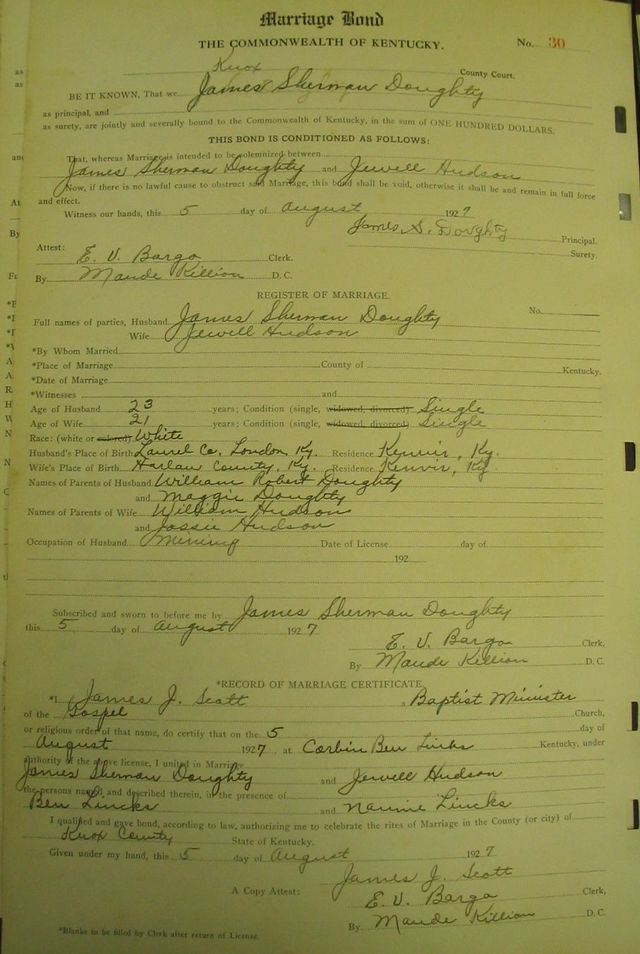 Marriage Bond
THE COMMONWEALTH OF KENTUCKY. No. 30
Knox County Court.
BE IT KNOWN, That we James Sherman Doughty
as principal, and
as surety, are jointly and severally bound to the Commonwealth of Kentucky, in the sum of ONE HUNDRED DOLLARS.
THIS BOND IS CONDITIONED AS FOLLOWS:
That, whereas Marriage is intended to be solemnized between
James Sherman Doughty and Jewell Hudson
Now, if there is no lawful cause to obstruct said Marriage, this bond shall be void, otherwise it shall be and remain in full force
and effect.
Witness our hands, this 5 day of August 1927
James S. Doughty Principal.
Surety.
Attest:
E. V. Bargo Clerk.
By Maude Killion D. C.
REGISTER OF MARRIAGE.
Full names of parties, Husband James Sherman Doughty No.
Wife Jewell Hudson
*By Whom Married
*Place of Marriage County of Kentucky.
*Date of Marriage
*Witnesses and
Age of Husband 23 years; Condition (single, widowed, divorced) Single
Age of Wife 21 years; Condition (single, widowed, divorced) Single
Race: (white or colored) White
Husband's Place of Birth Laurel Co. London, Ky. Residence Kenvir, Ky.
Wife's Place of Birth Harlan County, Ky. Residence Kenvir, Ky.
Names of Parents of Husband William Robert Doughty
and Maggie Doughty
Names of Parents of Wife William Hudson
and Jossie Hudson
Occupation of Husband Mining Date of License day of
192
Subscribed and sworn to before me by James Sherman Doughty
this 5 day of August 1927
E. V. Bargo Clerk,
By Maude Killion D. C.
*RECORD OF MARRIAGE CERTIFICATE
*I James J. Scott a Baptist Minister
of the Gospel Church,
or religious order of that name, do certify that on the 5 day of
August 1927, at Corbin Ben Lincks Kentucky, under
authority of the above license, I united in Marriage
James Sherman Doughty and Jewell Hudson
the persons named and described therein, in the presence of
Ben Lincks and Nannie Lincks
I qualified and gave bond, according to law, authorizing me to celebrate the rites of Marriage in the County (or city) of
Knox County State of Kentucky.
Given under my hand, this 5 day of August 1927
James J. Scott
A Copy Attest: E. V. Bargo Clerk,
By Maude Killion D. C.
*Blanks to be filled by Clerk after return of License.